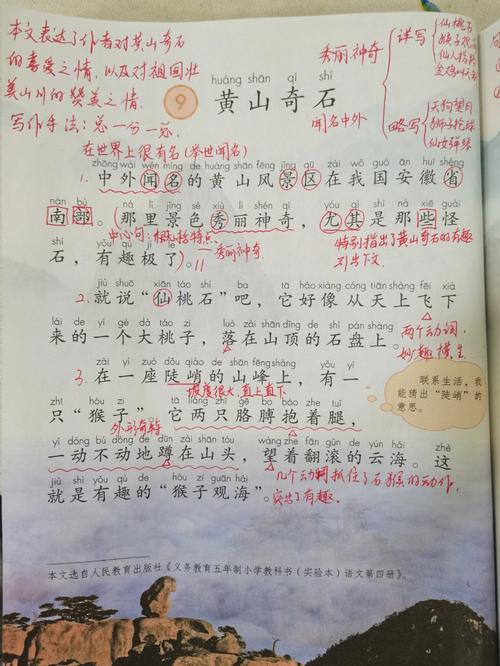 本文表达了作者对黄山奇石
的喜爱之情,以及对祖国壮
美山川的赞美之情。
写作手法:总一分一总
秀丽神奇
闻名中外
详写
仙桃石
猴子观海
仙人指路
金鸡叫天都
略写
天狗望月
狮子抢球
仙女弹琴
huáng shān qí shí
9 黄山奇石
在世界上很有名(举世闻名)
zhōng wài wén míng de huáng shān fēng jǐng qū zài wǒ guó ān huī shěng
1. 中外闻名的黄山风景区在我国安徽省
nán bù nà lǐ jǐng sè xiù lì shén qí yóu qí shì nà xiē guài
南部。那里景色秀丽神奇,尤其是那些怪
中心句:概括特点
秀丽神奇
特别指出了黄山奇石的有趣
引出下文
shí yǒu qù jí le
石,有趣极了。
jiù shuō xiān táo shí ba tā hǎo xiàng cóng tiān shàng fēi xià
2. 就说“仙桃石”吧,它好像从天上飞下
lái de yí gè dà táo zi luò zài shān dǐng de shí pán shàng
来的一个大桃子,落在山顶的石盘上。
两个动词,
妙趣横生
zài yí zuò dǒu qiào de shān fēng shàng yǒu yì
3. 在一座陡峭的山峰上,有一
坡度很大,直上直下
zhī hóu zi tā liǎng zhī gē bo bào zhe tuǐ
只“猴子”。它两只胳膊抱着腿,
外形奇特
联系生活,我
能猜出“陡峭”的
意思。
yí dòng bú dòng de dūn zài shān tóu wàng zhe fān gǔn de yún hǎi zhè
一动不动地蹲在山头,望着翻滚的云海。这
jiù shì yǒu qù de hóu zi guān hǎi
就是有趣的“猴子观海”。
几个动词抓住了石猴的动作,
突出了有趣。
本文选自人民教育出版社《义务教育五年制小学教科书(实验本)语文第四册》。